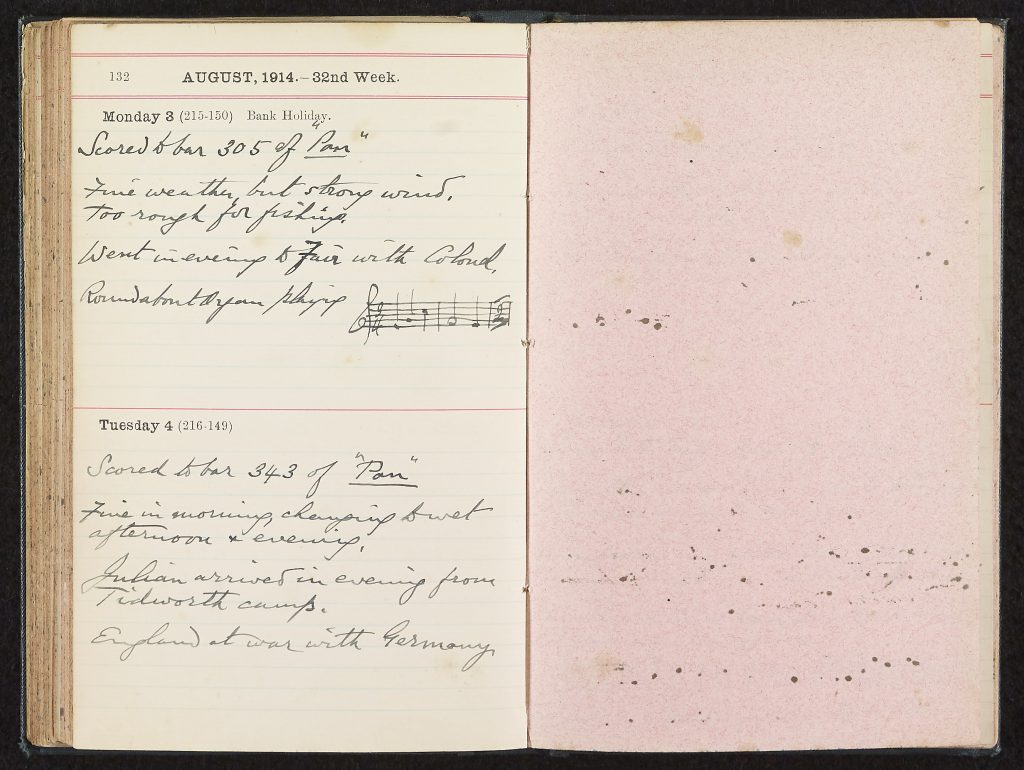 132 AUGUST, 1914.–32nd Week.
Monday 3 (215-150) Bank Holiday.
Scored to bar 305 of "Pan"
Fine weather, but strong wind.
Too rough for fishing.
Went in evening to Fair with Colonel,
Roundabout Organ playing
Tuesday 4 (216-149)
Scored to bar 343 of "Pan"
Fine in morning, changing to wet
afternoon & evening.
Julian arrived in evening from
Tidworth camp.
England at war with Germany.